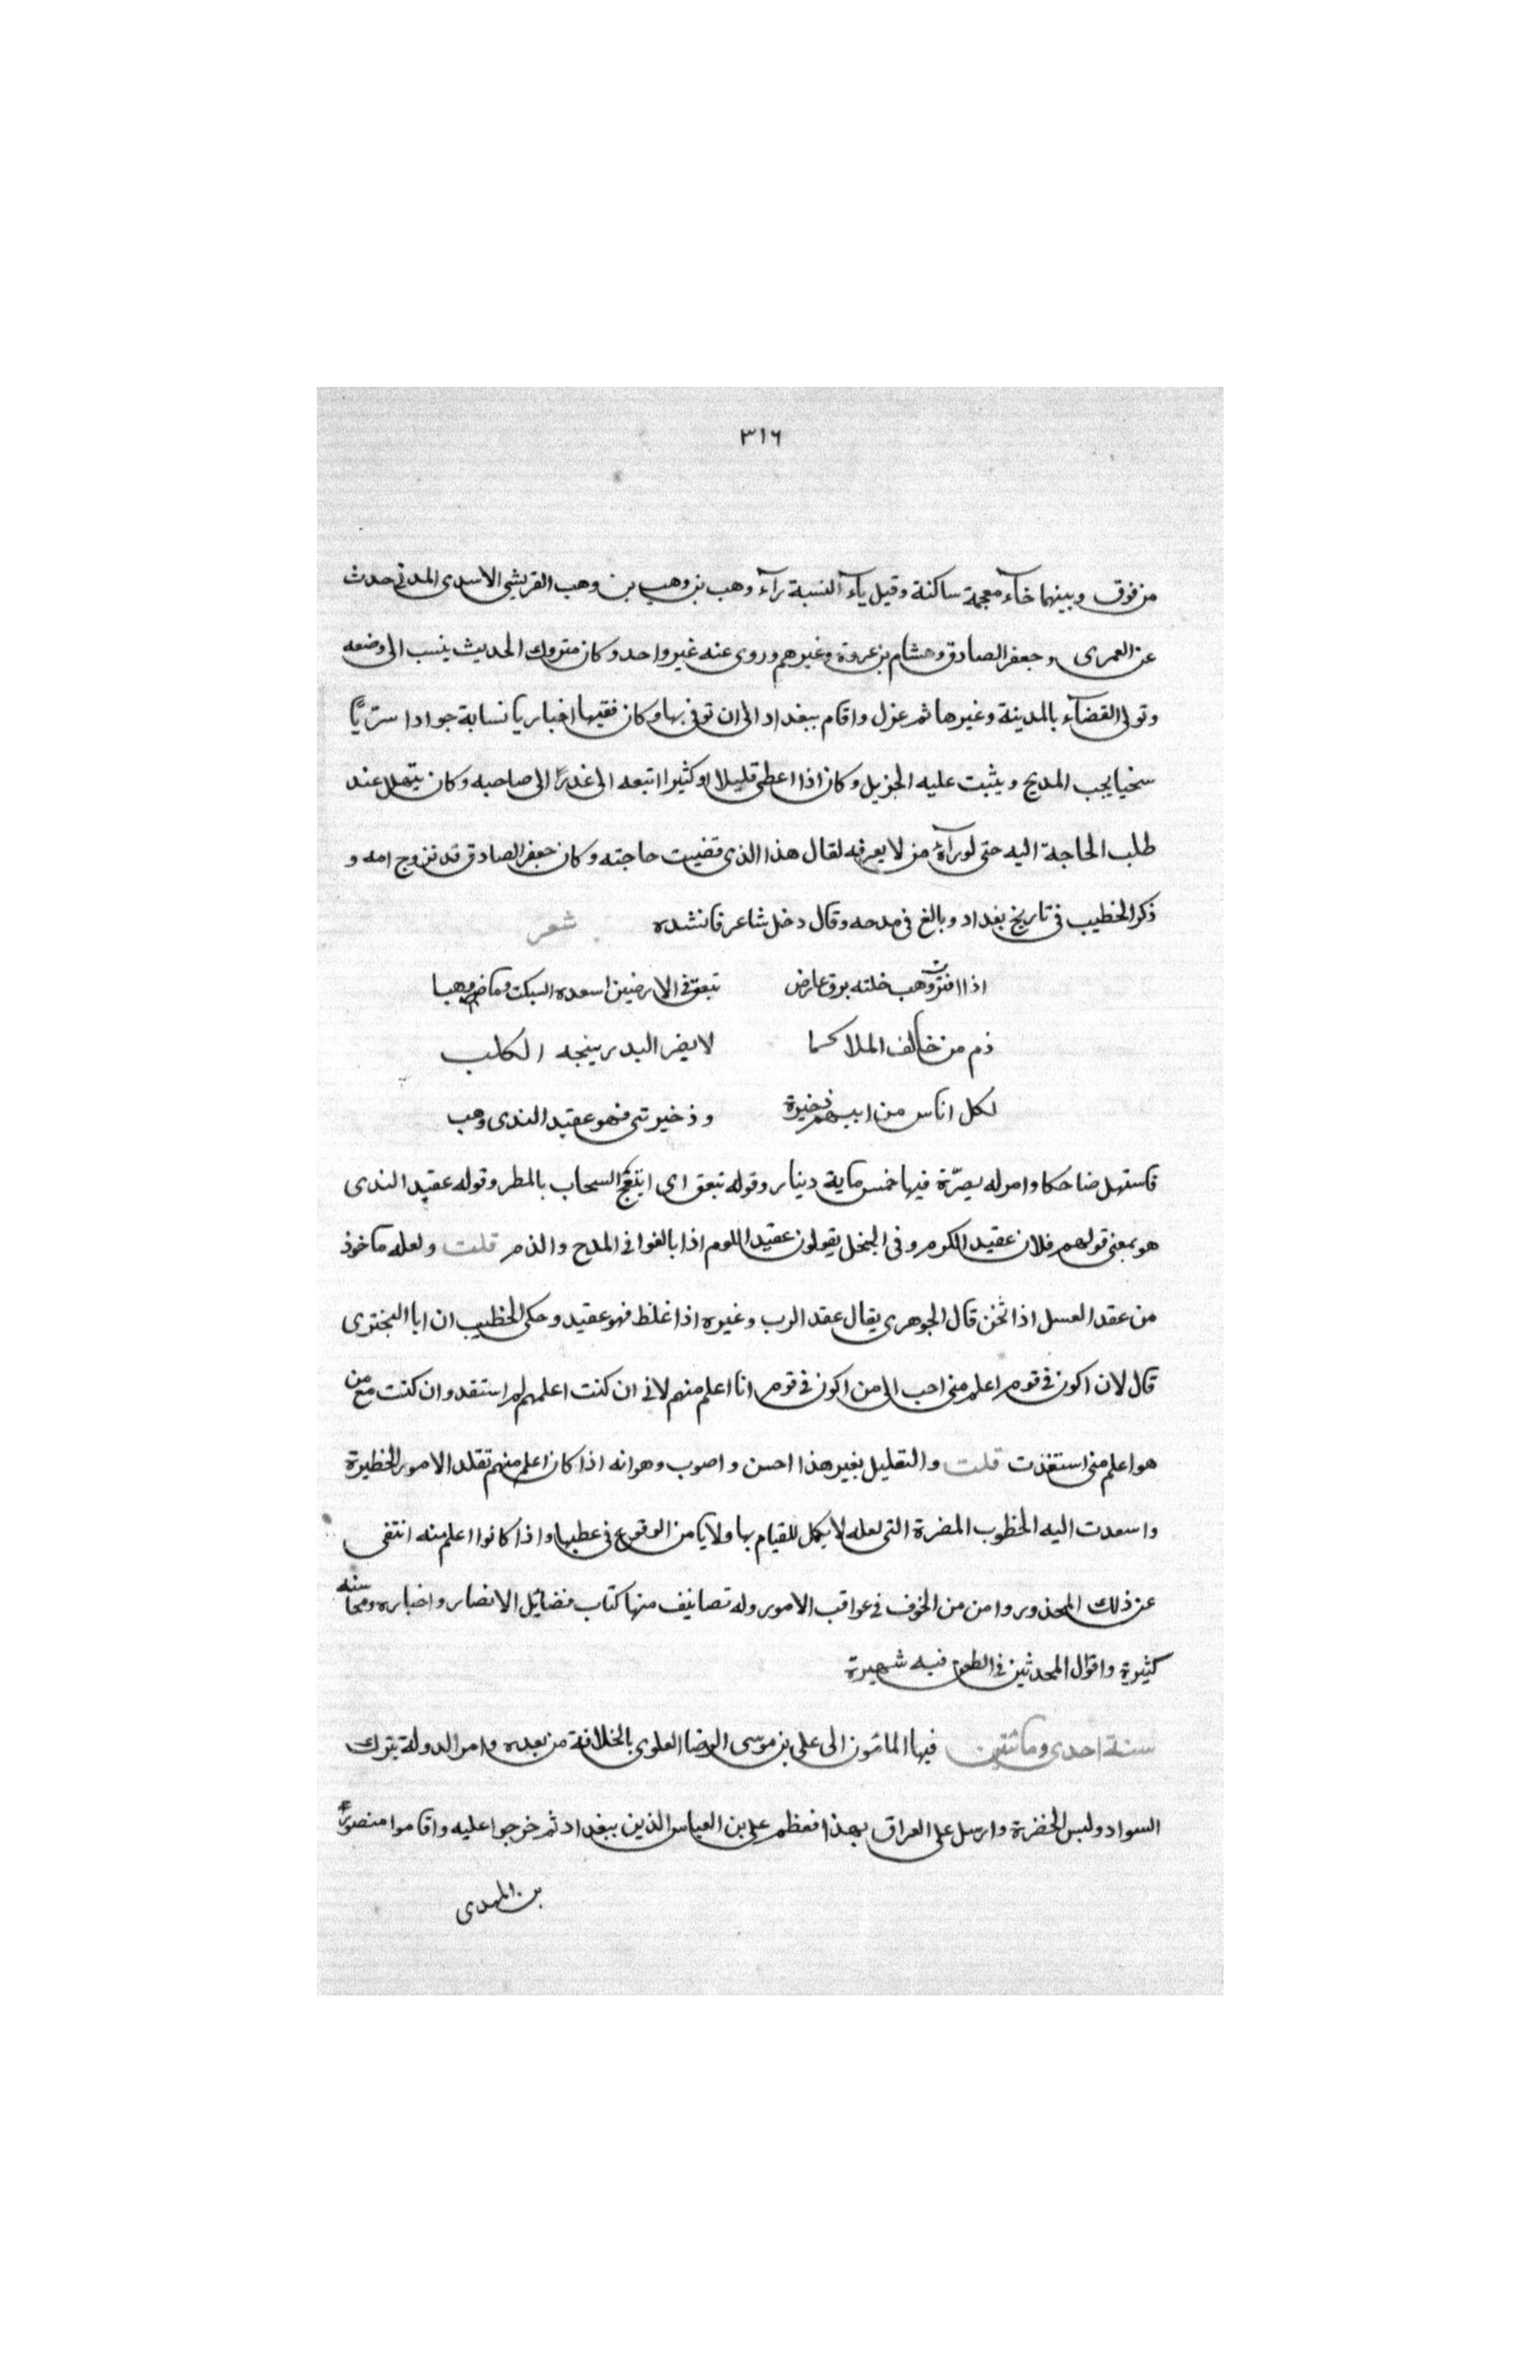 ٣١٦
من فوق وبينهما خآء معجمة ساكنة وقيل يآء النسبة رآء وهب بن وهب بن وهب القريشي الاسدى المدني حدث
عن العمرى وجعفر الصادق وهشام بن عروة وغيرهم وروى عنه غير واحد وكان متروك الحديث ينسب الى وضعه
وتولى القضآء بالمدينة وغيرها ثم عزل واقام ببغداد الى ان توفى بها وكان فقيها اخباريا نسابة جوادا سريًّا
سخيا يحب المديح ويثبت عليه الجزيل وكان اذا اعطى قليلا او كثيرا اتبعه الى صاحبه وكان يتهلل عند
طلب الحاجة اليه حتى لو رآه من لا يعرفه لقال هذا الذى قضيت حاجته وكان جعفر الصادق قد تزوج امه و
ذكر الخطيب في تاريخ بغداد وبالغ في مدحه وقال دخل شاعر فانشده شعر
اذا افتر وهب خلته برق عارض تبعق في الارضين اسعده السكب وما ضر وهبا
ذم من خالف الملا كما لا يضر البدر ينبحه الكلب
لكل اناس من ابيهم ذخيرة وذخيرتى فهو عقيد الندى وهب
فاستهل ضاحكا وامر له بصرّة فيها خمس ماية دينار وقوله تبعق اى السحاب بالمطر وقوله عقيد الندى
هو بمعنى قولهم فلان عقيد الكرم وفى البخل يقولون عقيد اللوم اذا بالغوا في المدح والذم قلت ولعله ماخوذ
من عقد العسل اذا ثخن قال الجوهرى يقال عقد الرب وغيره اذا غلظ فهو عقيد وحكى الخطيب ان ابا البخترى
قال لان اكون في قوم اعلم منى احب الى من اكون في قوم انا اعلم منهم لانى ان كنت اعلمهم لم استفد وان كنت مع من
هو اعلم منى استفدت قلت والتعليل بغير هذا احسن واصوب وهو انه اذا كان اعلم منهم تقلد الامور الخطيرة
واسعدت اليه الخطوب المضرة التى لعله لا يكمل للقيام بها ولا يامن الوقوع في عطبها واذا كانوا اعلم منه انتفى
عن ذلك المحذور وامن من الخوف في عواقب الامور وله تصانيف منها كتاب فضائل الانصار واخباره ومحاسنه
كثيرة واقوال المحدثين في الطعن فيه شهيرة
سنة احدى ومائتين فيها المائمون الى على بن موسى الرضا العلوى بالخلافة من بعده وامر الدولة بترك
السواد ولبس الخضرة وارسل على العراق بهذا فعظم على بن العباس الذين ببغداد ثم خرجوا عليه واقاموا منصور
بن المهدى